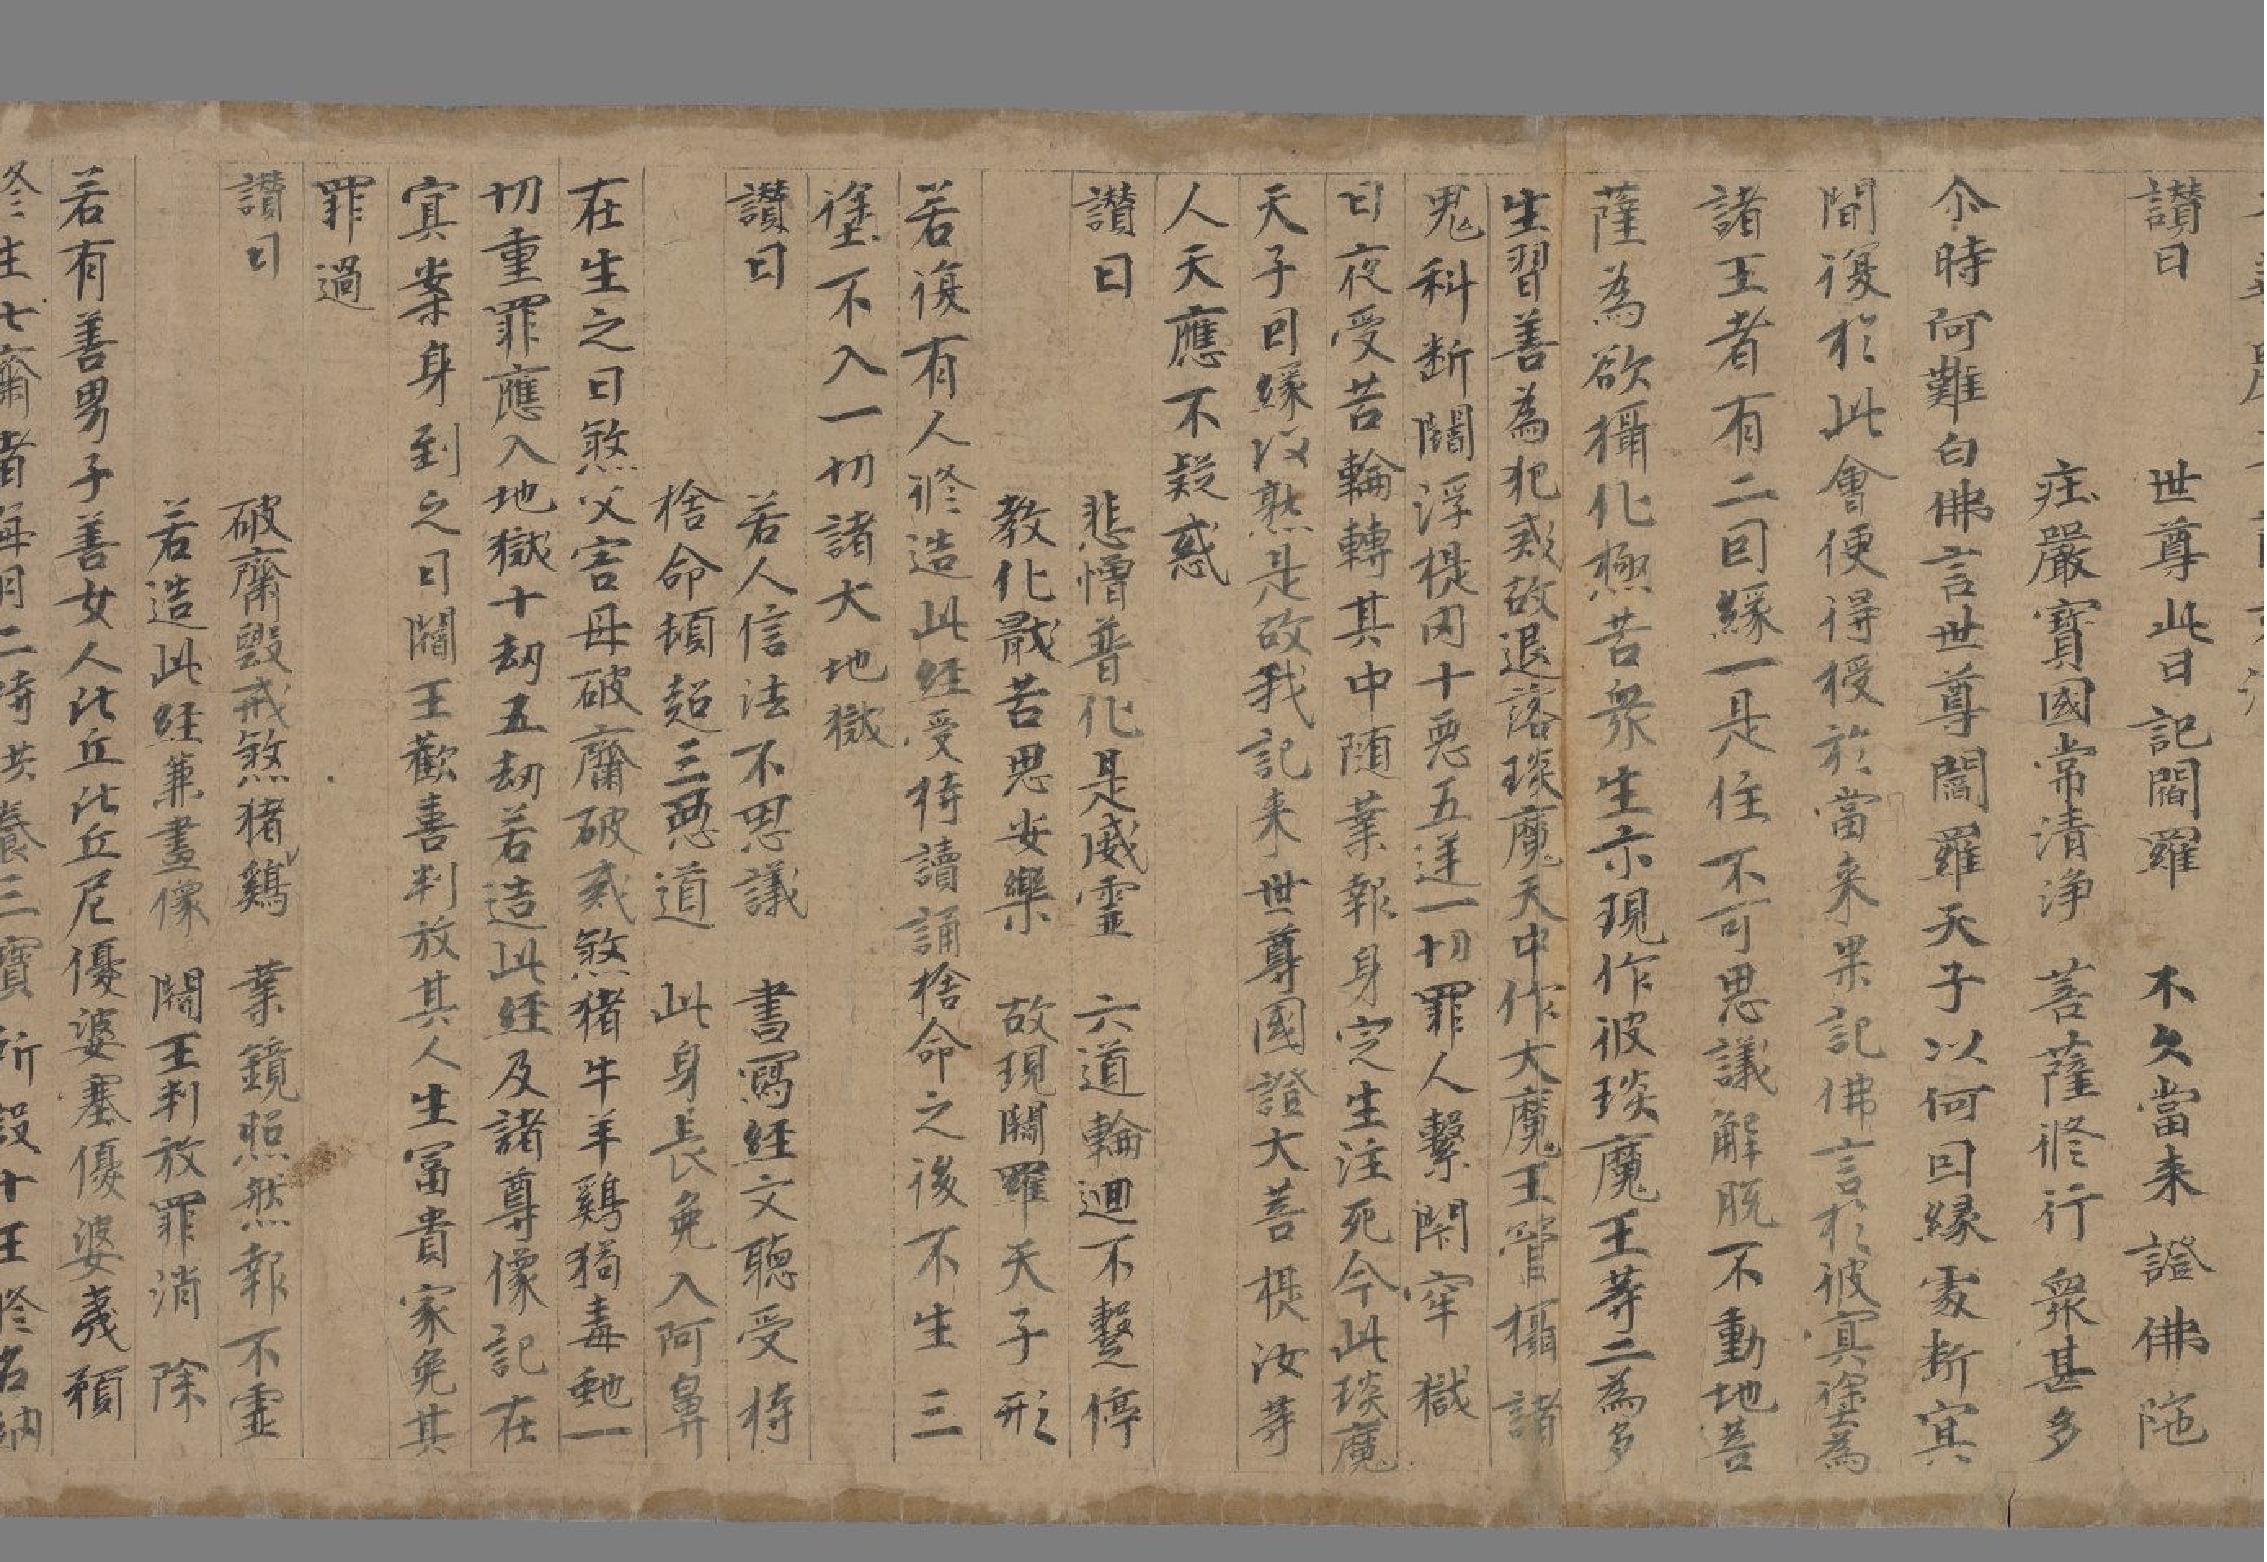 讚曰　世尊此日記閻羅　不久當来證佛陁
莊嚴寶國常清淨　菩薩修行衆甚多
尒時阿難白佛言世尊閻羅天子以何因緣處断冥
間復於此會便得授於當来果記佛言於彼冥塗為
諸王者有二因緣一是住不可思議解脱不動地菩
薩為欲攝化極苦衆生示現作彼琰魔王等二為多
生習善為犯戒故退落琰魔天中作大魔王管攝諸
鬼科断閻浮提内十惡五逆一切罪人繫閇牢獄
日夜受苦輪轉其中随業報身定生注死今此琰魔
天子因緣以熟是故我記来世尊國證大菩提汝等
人天應不疑惑
讚曰　悲憎普化是威霊　六道輪迴不蹔停
教化猒苦思安樂　故現閻羅天子形
若復有人修造此経受持讀誦捨命之後不生三
塗不入一切諸大地獄
讚曰　若人信法不思議　書寫経文聽受持
捨命頓超三惡道　此身長免入阿鼻
在生之日煞父害母破齋破戒煞猪牛羊鷄猗毒虵一
切重罪應入地獄十劫五劫若造此経及諸尊像記在
冥案身到之日閻王歡喜判放其人生冨貴家免其
罪過
讚曰　破齋毀戒煞猪鷄　業鏡照然報不霊
若造此経兼畫像　閻王判放罪消除
若有善男子善女人比丘比丘尼優婆塞優婆夷預
修生七齋者每月二時供養三寳所設十王修名納